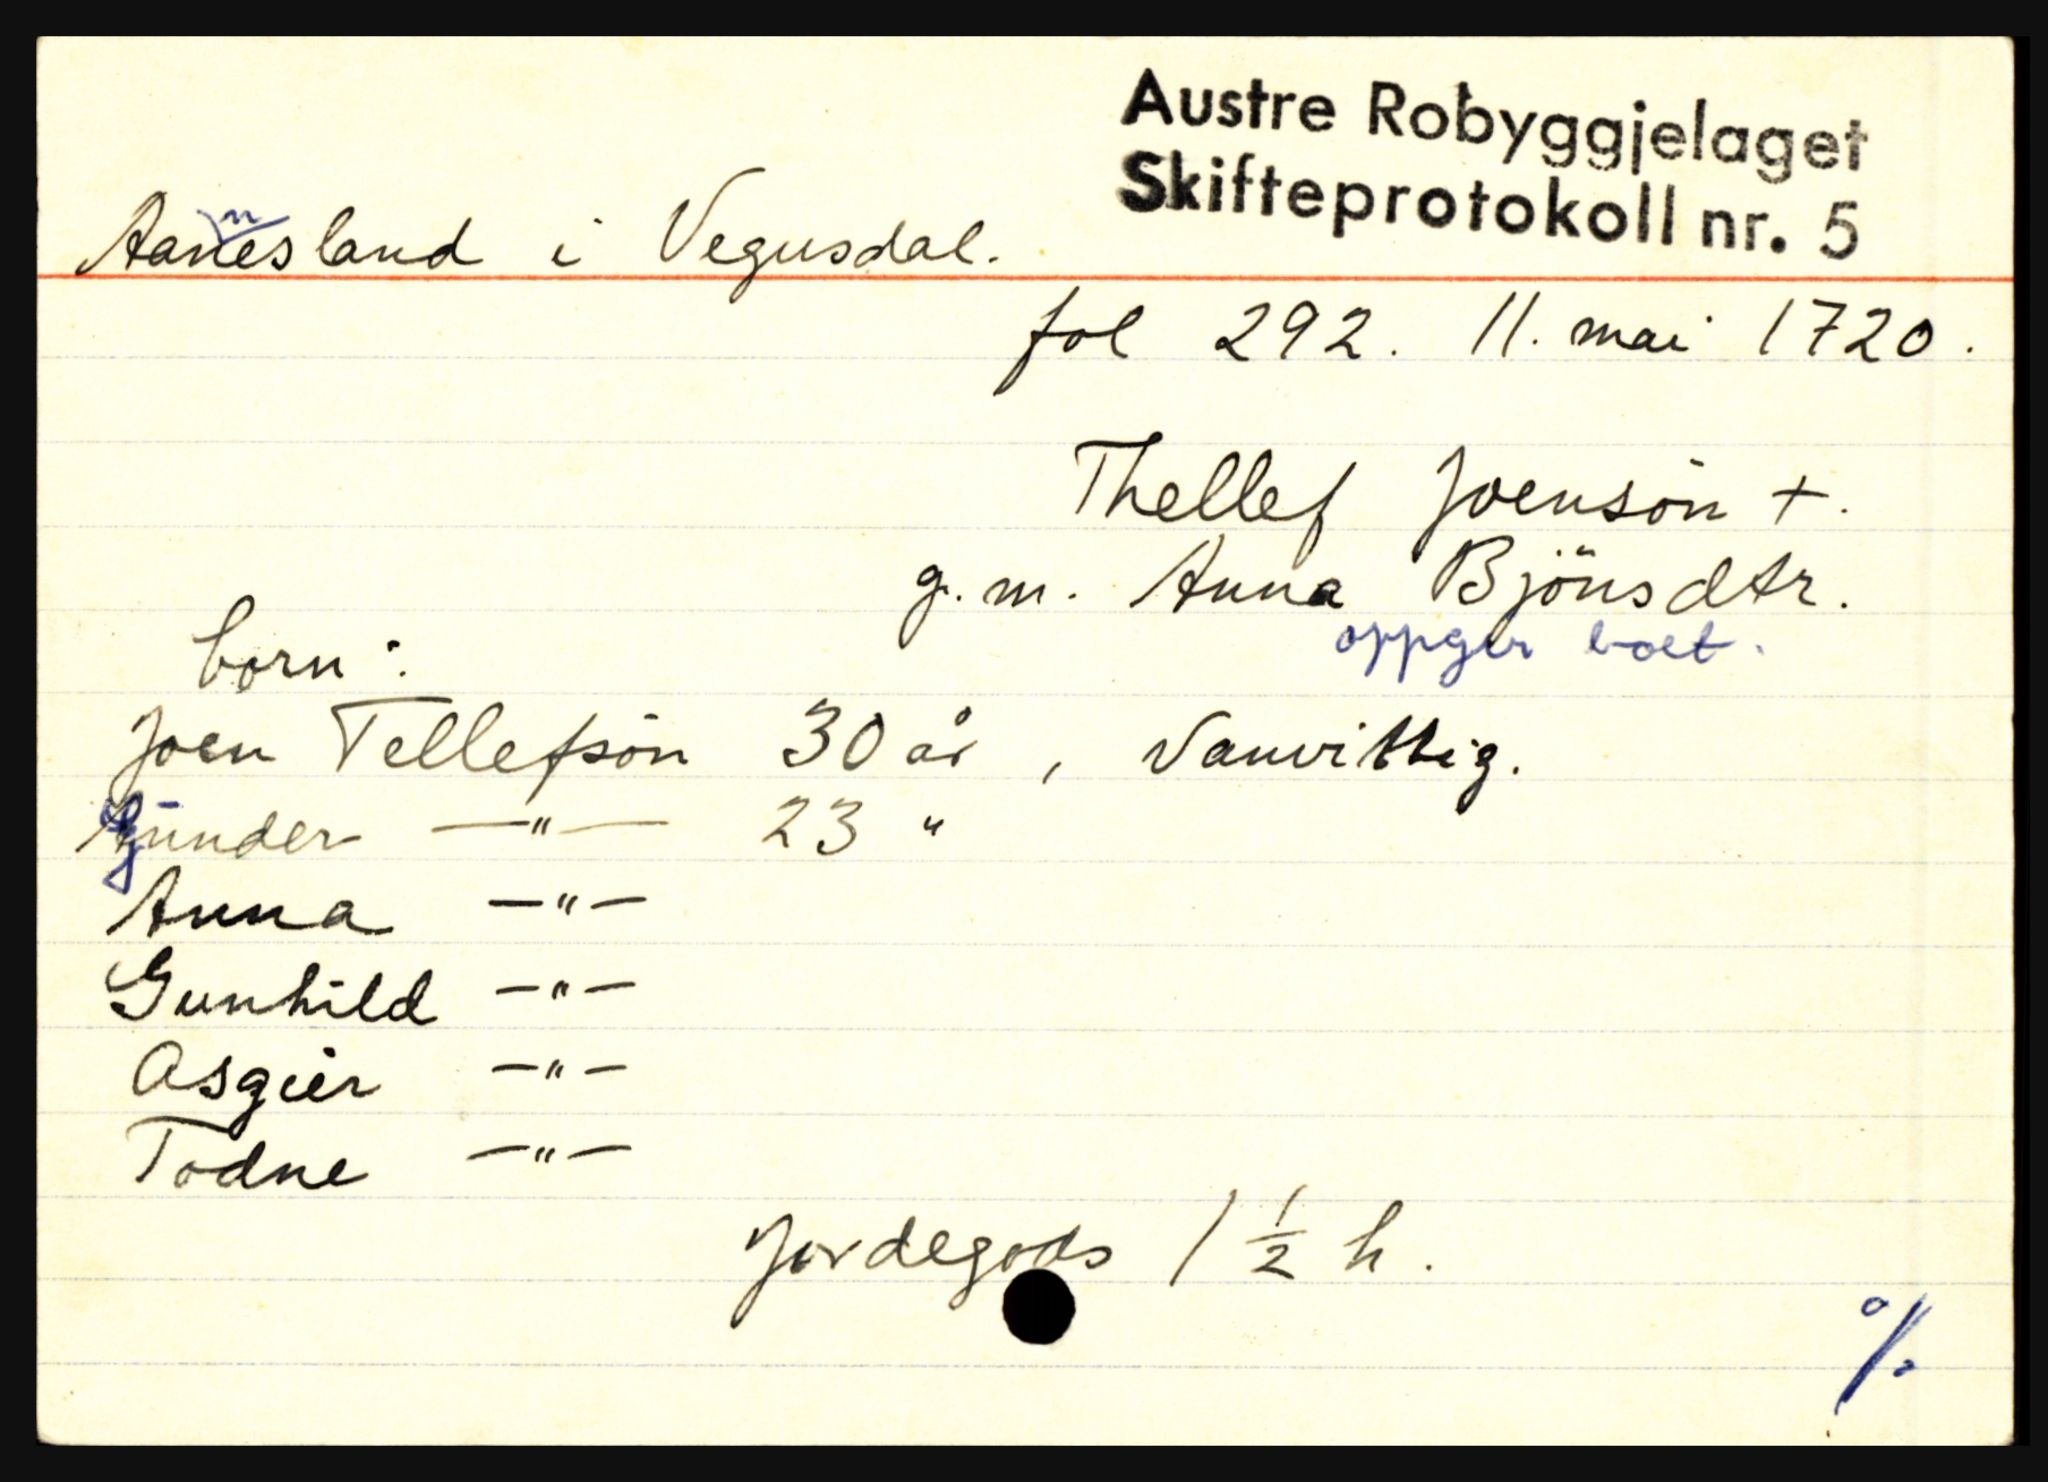 Austre Robyggjelaget
Skifteprotokoll nr. 5
Aanesland i Vegusdal.
n
fol 292. 11. mai 1720.
Thellef Joensön +.
g.m. Anna Bjönsdtr.
oppger boet.
born:
Joen Tellefsön 30 år, Vanvittig.
Gunder —"— 23 "
Anna —"—
Gunhild —"—
Asgier —"—
Todne —"—
Jordegods 1 1/2 h.